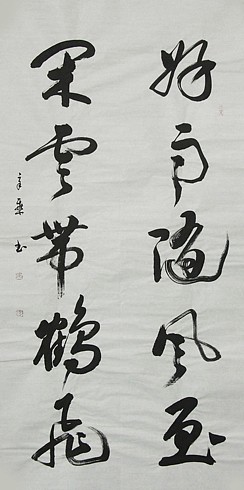 好雨随风至
闲云带鹤飞